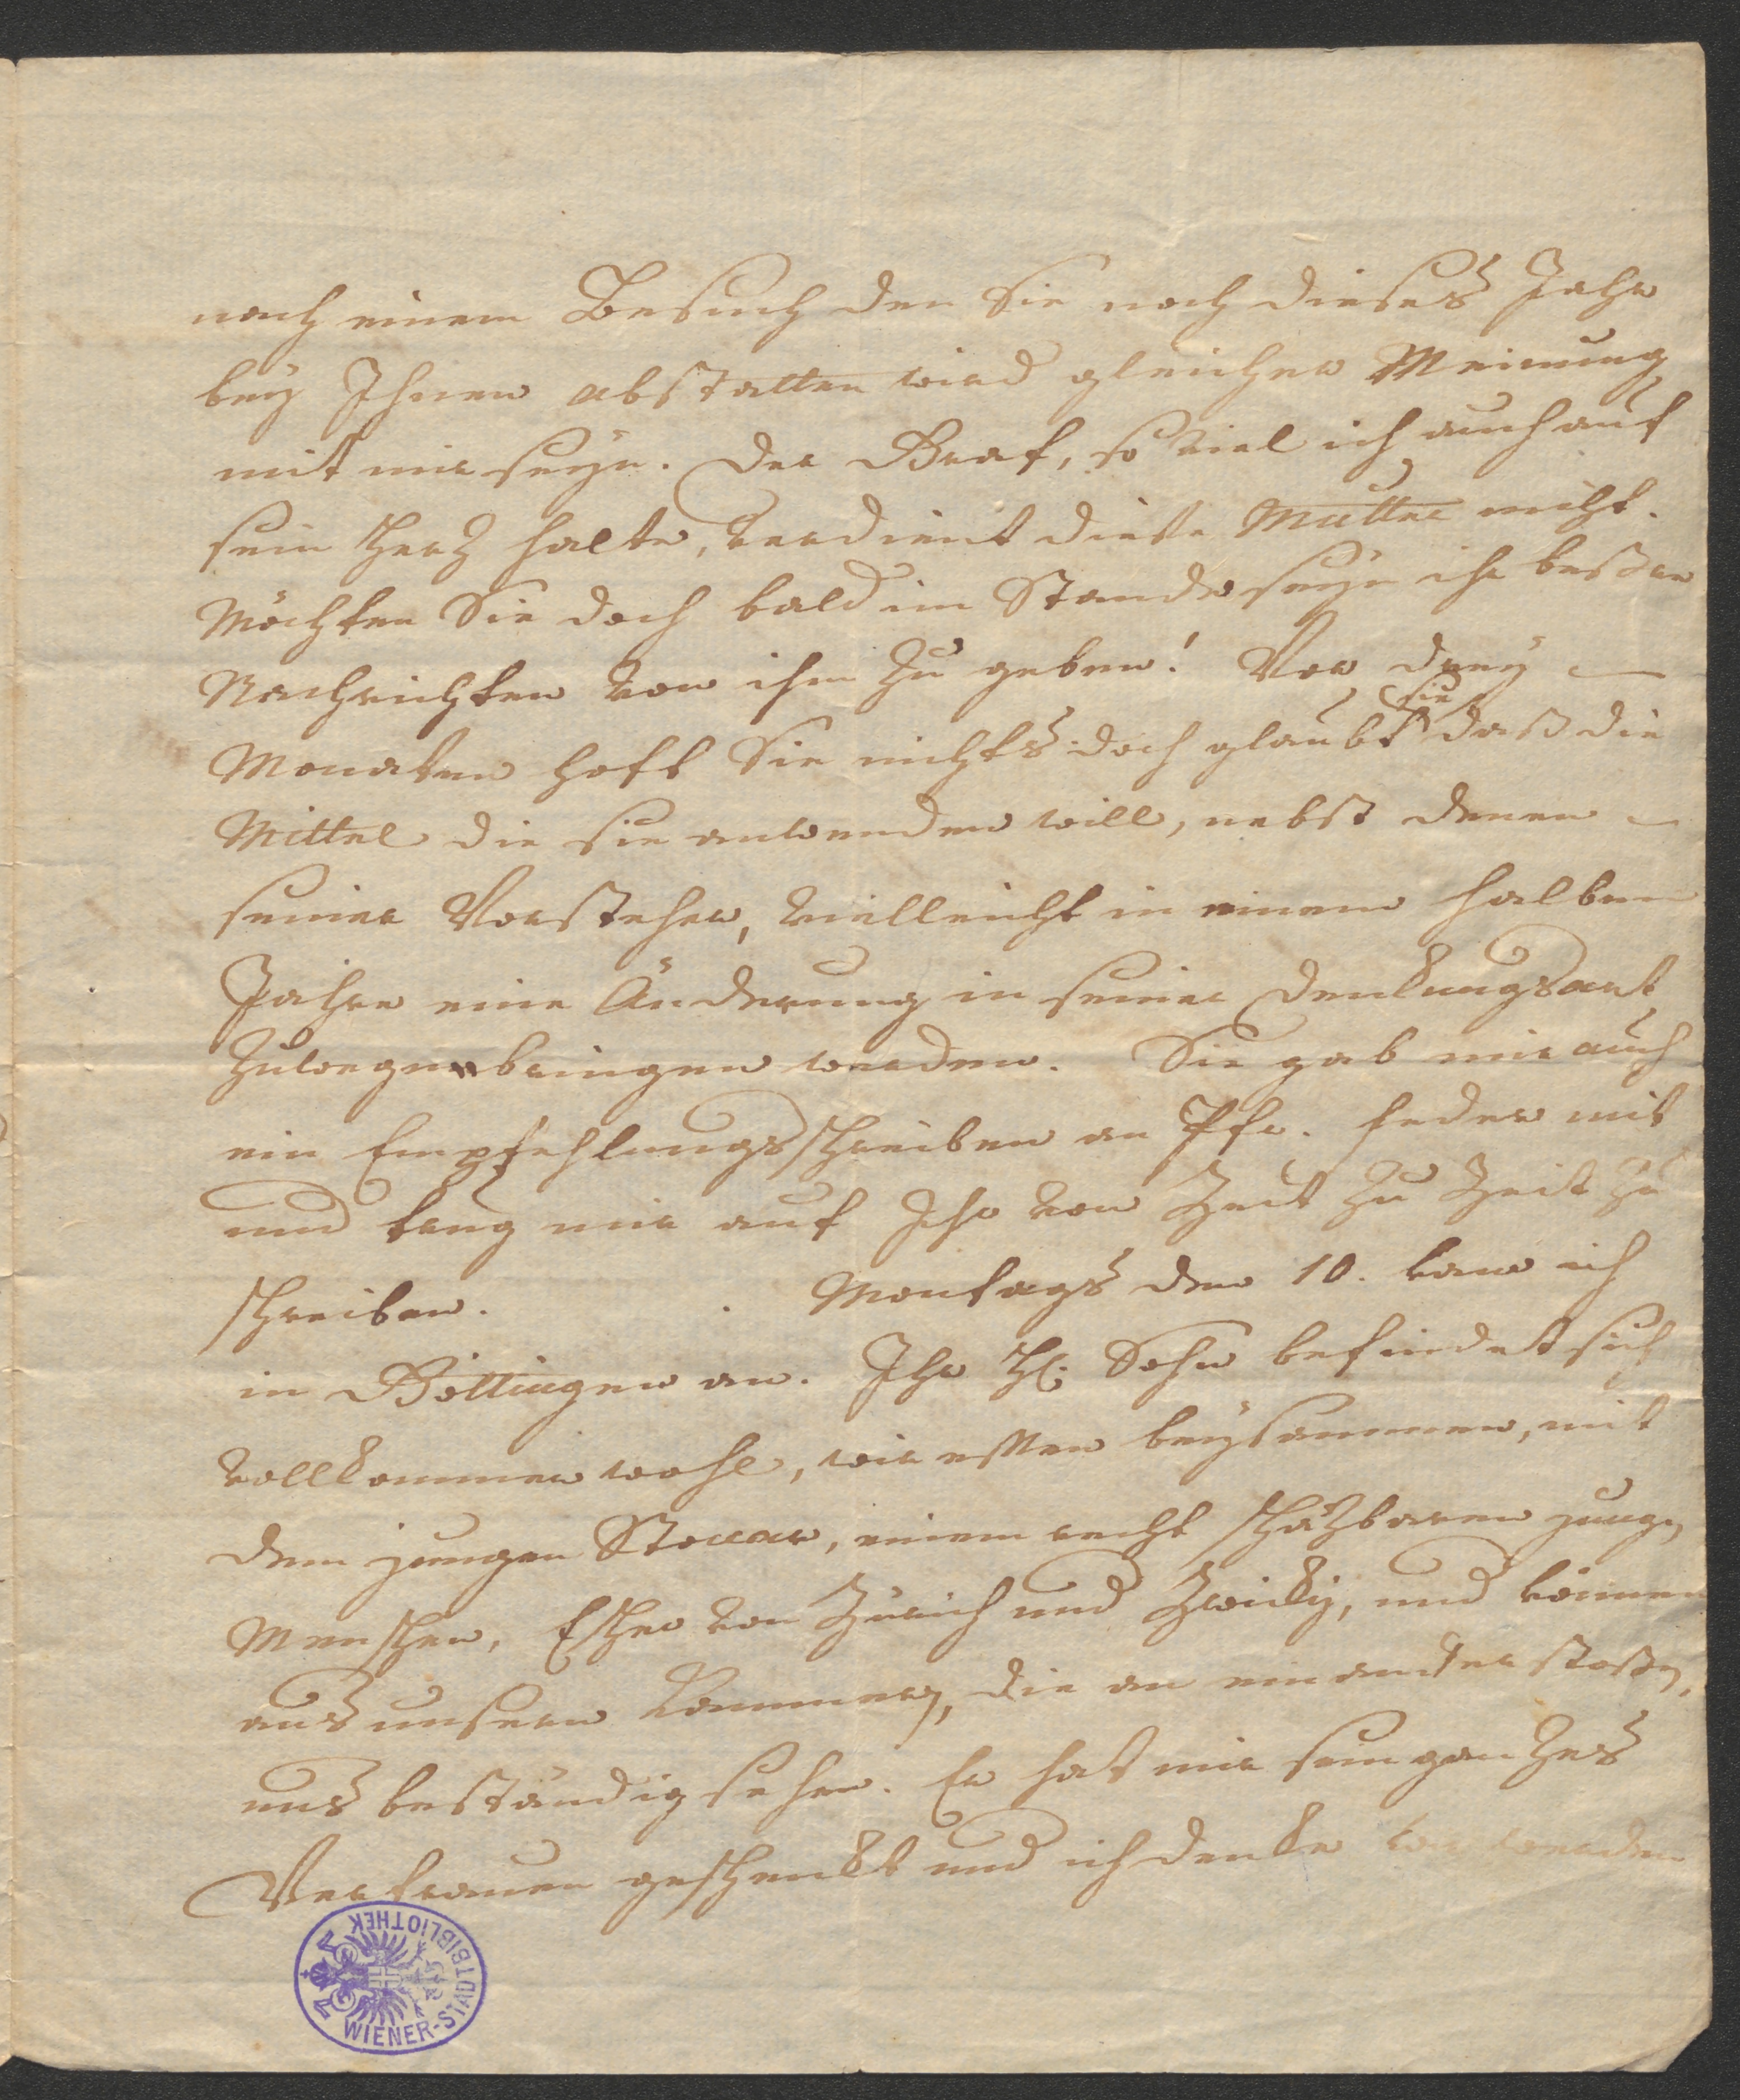 nach einem Besuch den Sie noch dieses Jahr
bey Ihnen abstatten wird gleicher Meinung
mit mir seyn. Der Graf, so viel ich auch auf
sein Herz halte, verdient diese Mutter nicht.
Möchten Sie doch bald im Stande seyn ihr beßere
Nachrichten von ihm zu geben! Vor drey
Monaten hoft Sie nichts doch glaubt sie daß die
Mittel die sie anwenden will, nebst denen
seiner Vorsteher, vielleicht in einem halben
Jahre eine Änderung in seiner Denkungsart
zuwegen bringen werden. Sie gab mir auch
ein Empfehlungsschreiben an Pfr. Feder mit
und trug mir auf Ihr von Zeit zu Zeit zu
schreiben. Montags den 10. kam ich
in Göttingen an. Ihr H. Sohn befindet sich
vollkommen wohl, wir essen beysammen, mit
dem jungen Stockar, einem recht schäzbaren jungen
Menschen, Escher von Zürich und Zwicky, und können
aus unsern Kammern, die an einander stoßen,
uns beständig sehen. Er hat mir sein ganzes
Vertrauen geschenkt und ich denke wir werden
WIENER-STADTBIBLIOTHEK